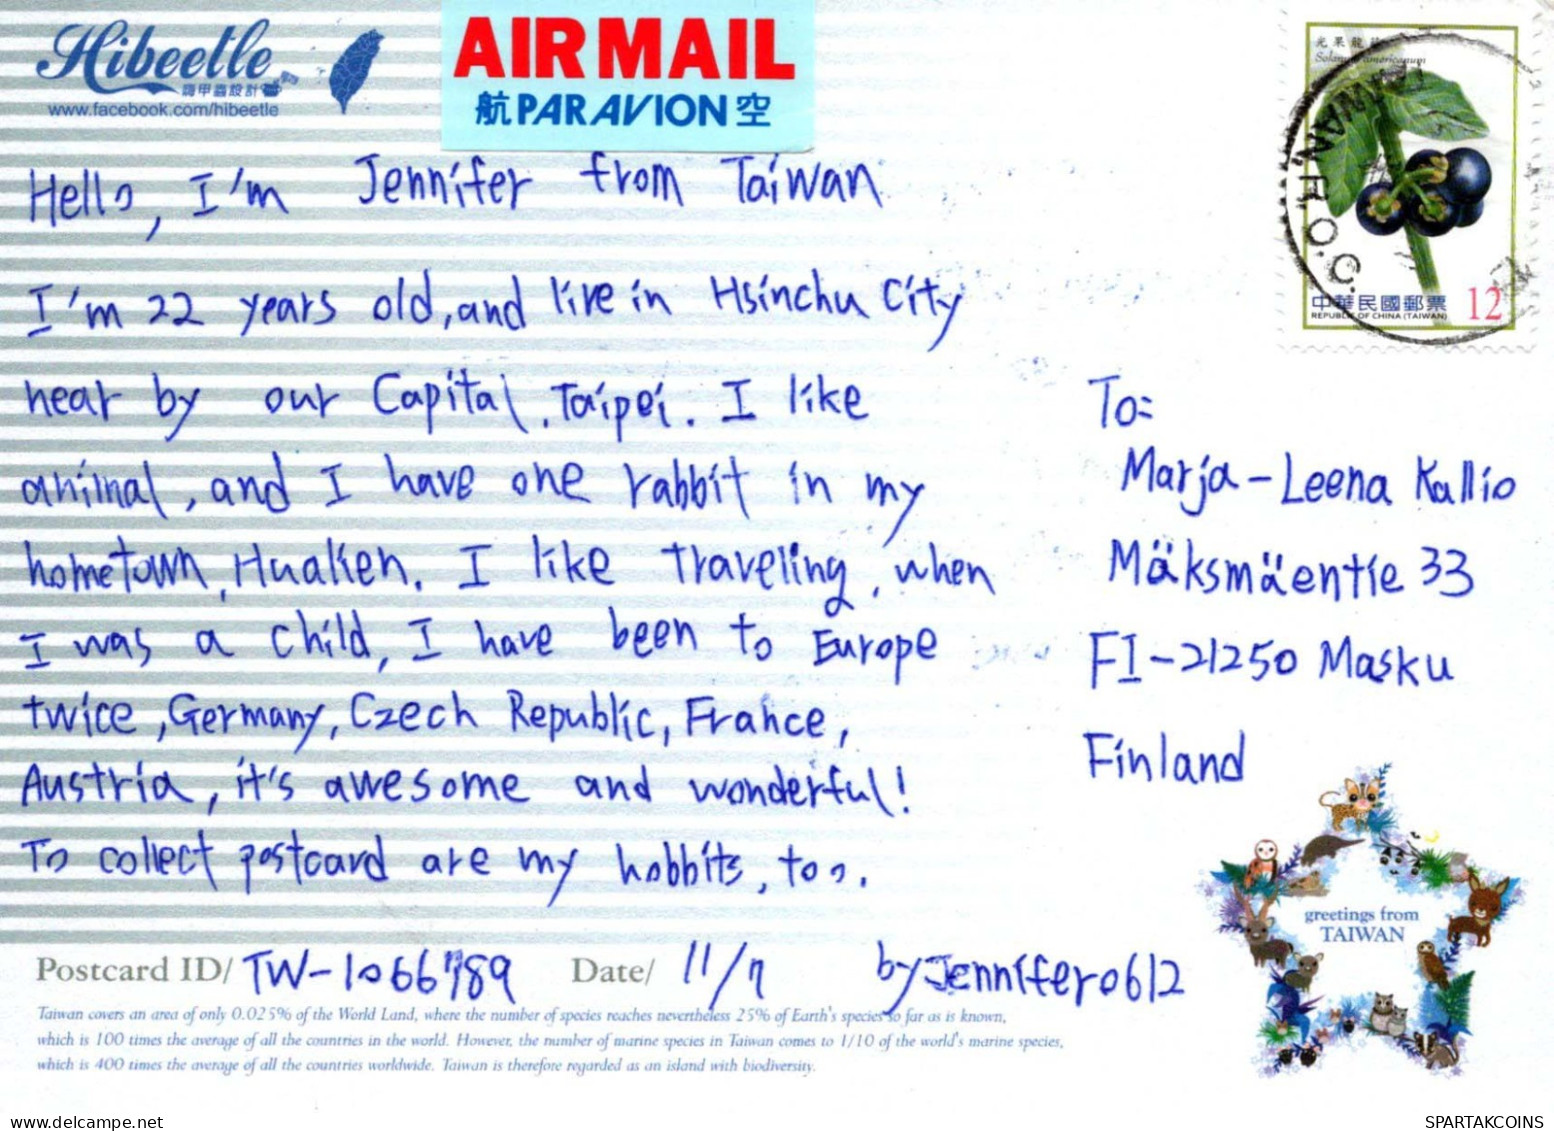 Hibeetle
嗨甲蟲設計
www.facebook.com/hibeetle
AIR MAIL
航 PAR AVION 空
Solanum americanum
TAIWAN, R.O.C.
中華民國郵票
REPUBLIC OF CHINA (TAIWAN)
12
Hello, I'm Jennifer from Taiwan
I'm 22 years old, and live in Hsinchu City
near by our Capital, Taipei. I like
animal, and I have one rabbit in my
hometown, Hualien. I like traveling, when
I was a child, I have been to Europe
twice, Germany, Czech Republic, France,
Austria, it's awesome and wonderful!
To collect postcard are my hobbits, too.
To:
Marja-Leena Kallio
Mäksmäentie 33
FI-21250 Masku
Finland
greetings from
TAIWAN
Postcard ID/ TW-1066789 Date/ 11/7 by Jennifer0612
Taiwan covers an area of only 0.025% of the World Land, where the number of species reaches nevertheless 25% of Earth's species so far as is known,
which is 100 times the average of all the countries in the world. However, the number of marine species in Taiwan comes to 1/10 of the world's marine species,
which is 400 times the average of all the countries worldwide. Taiwan is therefore regarded as an island with biodiversity.
www.delcampe.net
SPARTAKCOINS